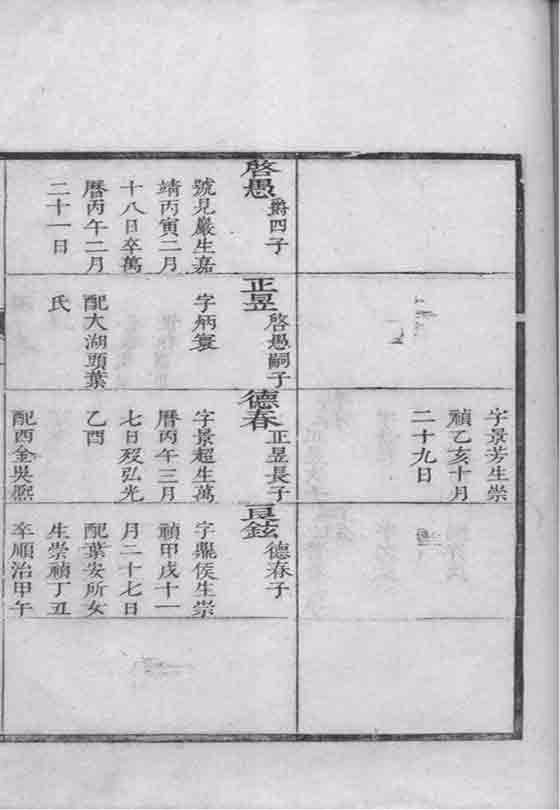 啓愚
爵四子
號見嚴生嘉
靖丙寅二月
十八日卒萬
曆丙午二月
二十一日
正昱
啓愚嗣子
字炳寰
配大湖頭葉
氏
字景芳生崇
禎乙亥十月
二十九日
德春
正昱長子
字景超生萬
曆丙午三月
七日歿弘光
乙酉
配西金吳熙
良鉉
德春子
字鼎侯生崇
禎甲戌十一
月二十七日
配葉安所女
生崇禎丁丑
卒順治甲午